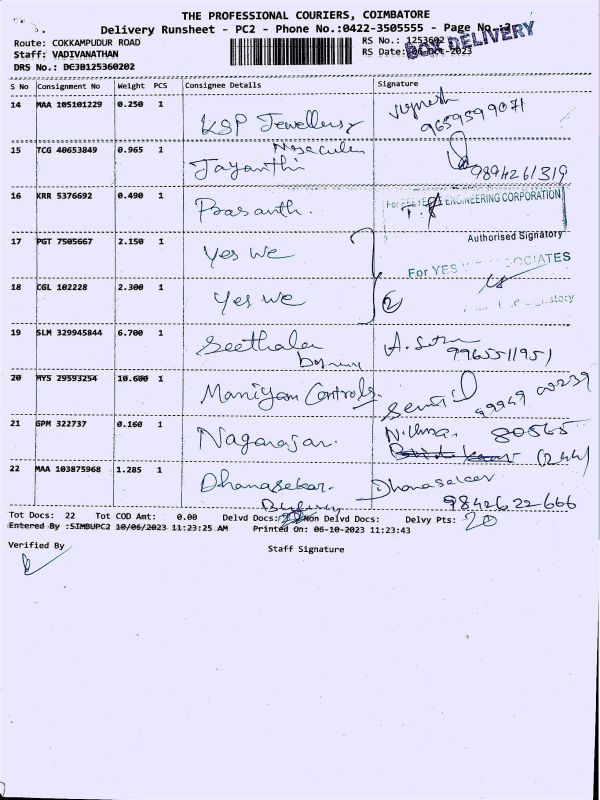 THE PROFESSIONAL COURIERS, COIMBATORE
Delivery Runsheet - PC2 - Phone No.:0422-3505555 - Page No.:2
Route: COKKAMPUDUR ROAD RS No.: 1253602
Staff: VADIVANATHAN RS Date: 06-Oct-2023
BOX DELIVERY
DRS No.: DC3B125360202
S No Consignment No Weight PCS Consignee Details Signature
14 MAA 105101229 0.250 1 KSP Jewellers Vignesh
9659599071
15 TCG 40653849 0.965 1 Jayanthi
9894261319
16 KRR 5376692 0.490 1 Prasanth. ENGINEERING CORPORATION
Authorised Signatory
17 PGT 7505667 2.150 1 Yes We
For YES WE ASSOCIATES
18 CGL 102228 2.300 1 Yes We 2
19 SLM 329945844 6.700 1 Seethala A.
9965511951
20 MYS 29593254 10.600 1 Maniyam Controls. Senthil
99949 00239
21 GPM 322737 0.160 1 Nagarajan. N. Uma. 80565
(244)
22 MAA 103875968 1.285 1 Dhanasekar. Dhanasekar
9842622666
Tot Docs: 22 Tot COD Amt: 0.00 Delvd Docs: Non Delvd Docs: Delvy Pts: 20
Entered By :SIMBUPC2 10/06/2023 11:23:25 AM Printed On: 06-10-2023 11:23:43
Verified By Staff Signature